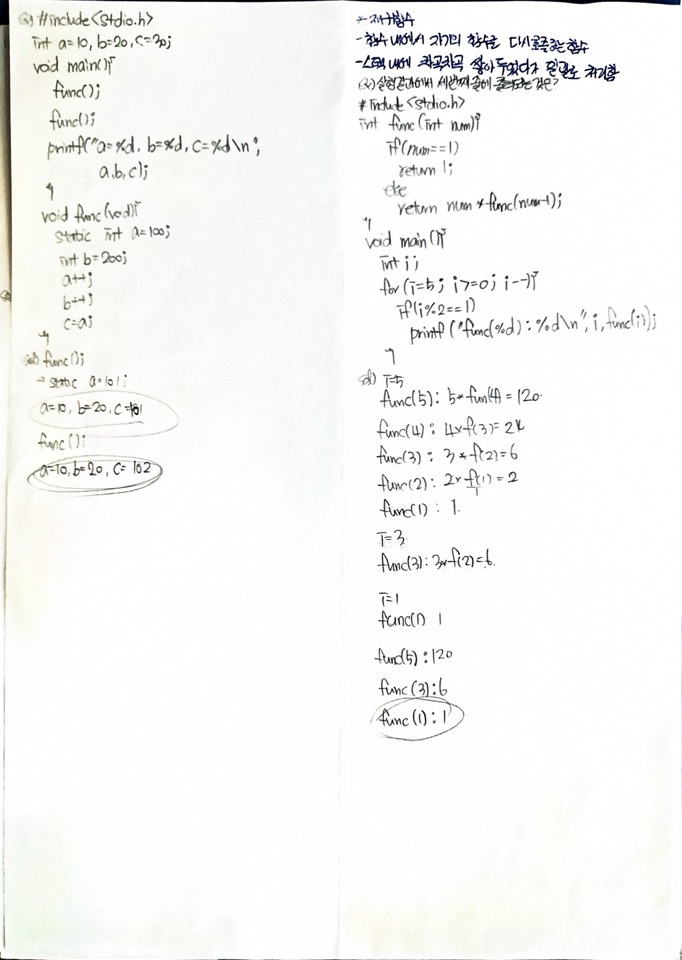 Q) #include<stdio.h>
int a=10, b=20, c=30;
void main(){
func();
func();
printf("a=%d, b=%d, c=%d\n",
a,b,c);
}
void func(void){
static int a=100;
int b=200;
a++;
b++;
c=a;
}
sol) func();
→ static a=101;
a=10, b=20, c=101
func();
a=10, b=20, c=102
*재귀함수
-함수 내에서 자기의 함수를 다시 호출하는 함수
-스택 내에 차곡차곡 쌓아두었다가 일괄로 처리함
Q) 실행결과에서 세번째 줄에 출력되는 것은?
#include<stdio.h>
int func(int num){
if(num==1)
return 1;
else
return num*func(num-1);
}
void main(){
int i;
for(i=5; i>=0; i--){
if(i%2==1)
printf("func(%d):%d\n", i, func(i));
}
sol) i=5
func(5): 5*fun(4)=120
func(4): 4*f(3)=24
func(3): 3*f(2)=6
func(2): 2*f(1)=2
1
func(1): 1.
i=3
func(3): 3*f(2)=6.
i=1
func(1) 1
func(5):120
func(3):6
func(1):1